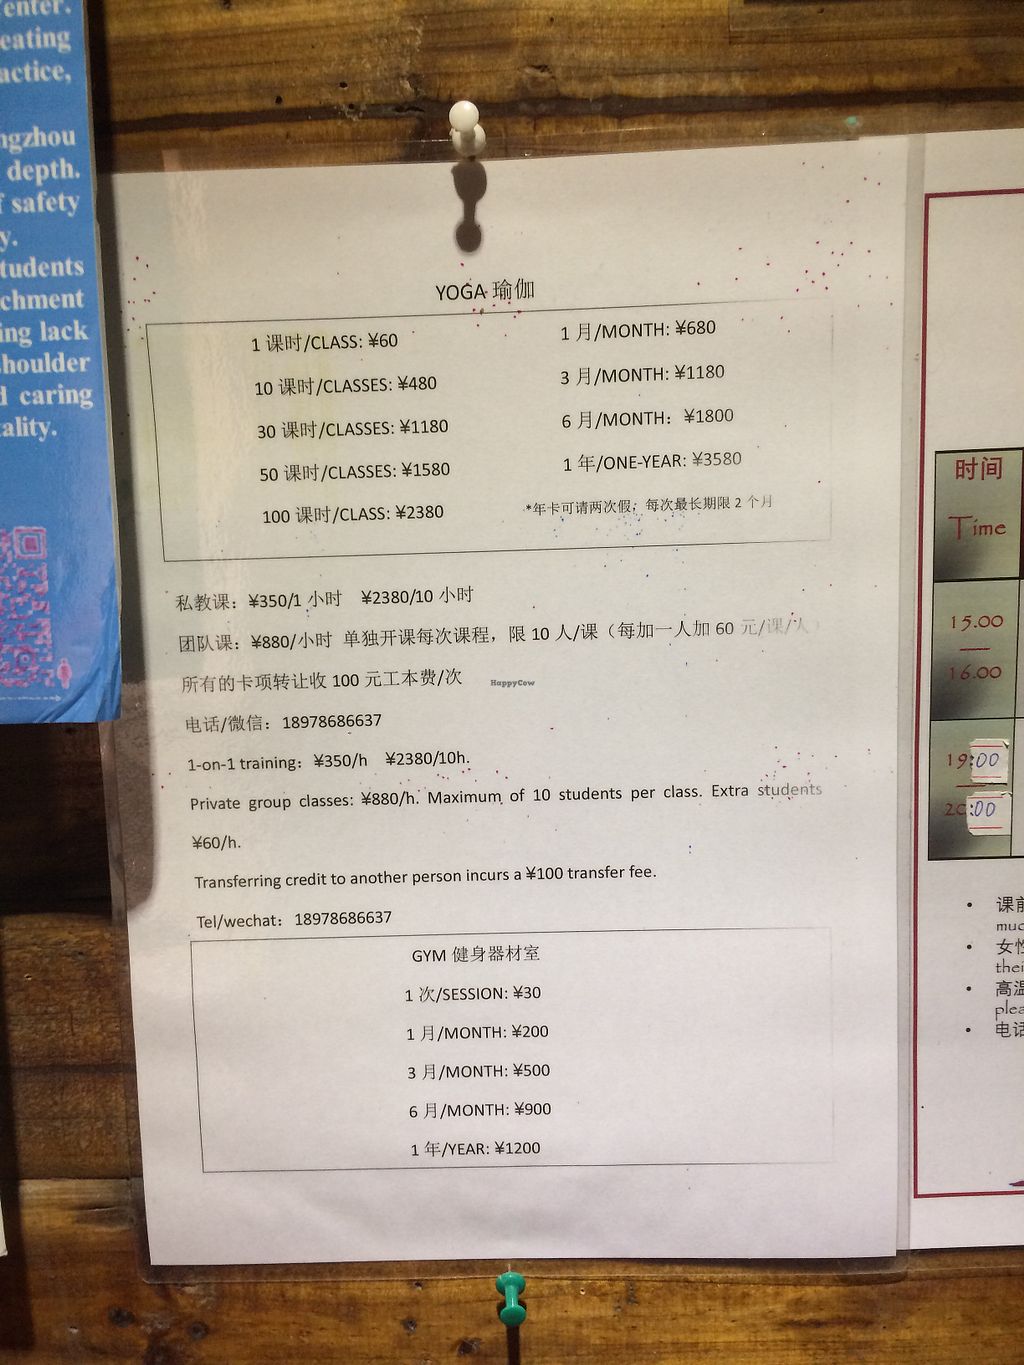 enter.
eating
actice,
ngzhou
depth.
f safety
y.
tudents
chment
ing lack
houlder
d caring
ality.
YOGA 瑜伽
1 课时/CLASS: ¥60
10 课时/CLASSES: ¥480
30 课时/CLASSES: ¥1180
50 课时/CLASSES: ¥1580
100 课时/CLASS: ¥2380
1 月/MONTH: ¥680
3 月/MONTH: ¥1180
6 月/MONTH：¥1800
1 年/ONE-YEAR: ¥3580
*年卡可请两次假，每次最长期限 2 个月
私教课：¥350/1 小时 ¥2380/10 小时
团队课：¥880/小时 单独开课每次课程，限 10 人/课（每加一人加 60 元/课/人）
所有的卡项转让收 100 元工本费/次
HappyCow
电话/微信：18978686637
1-on-1 training：¥350/h ¥2380/10h.
Private group classes: ¥880/h. Maximum of 10 students per class. Extra students
¥60/h.
Transferring credit to another person incurs a ¥100 transfer fee.
Tel/wechat：18978686637
GYM 健身器材室
1 次/SESSION: ¥30
1 月/MONTH: ¥200
3 月/MONTH: ¥500
6 月/MONTH: ¥900
1 年/YEAR: ¥1200
时间
Time
15.00
16.00
19:00
20:00
• 课前
muc
• 女性
thei
• 高温
plea
• 电话